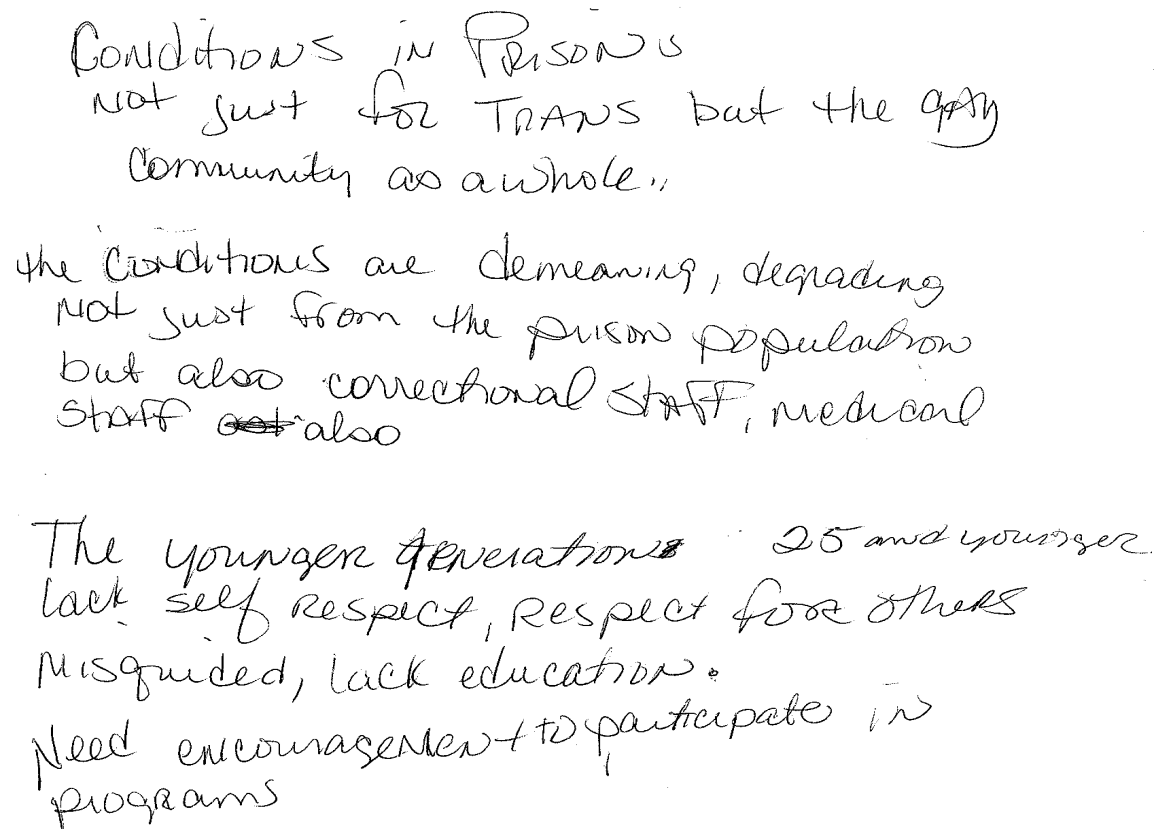 Conditions in Prisons
Not just for TRANS but the gay
Community as a whole..
the conditions are demeaning, degrading
Not just from the prison population
but also correctional staff, medical
staff also
The younger generations 25 and younger
lack self respect, respect for others
Misguided, lack education.
Need encouragement to participate in
programs